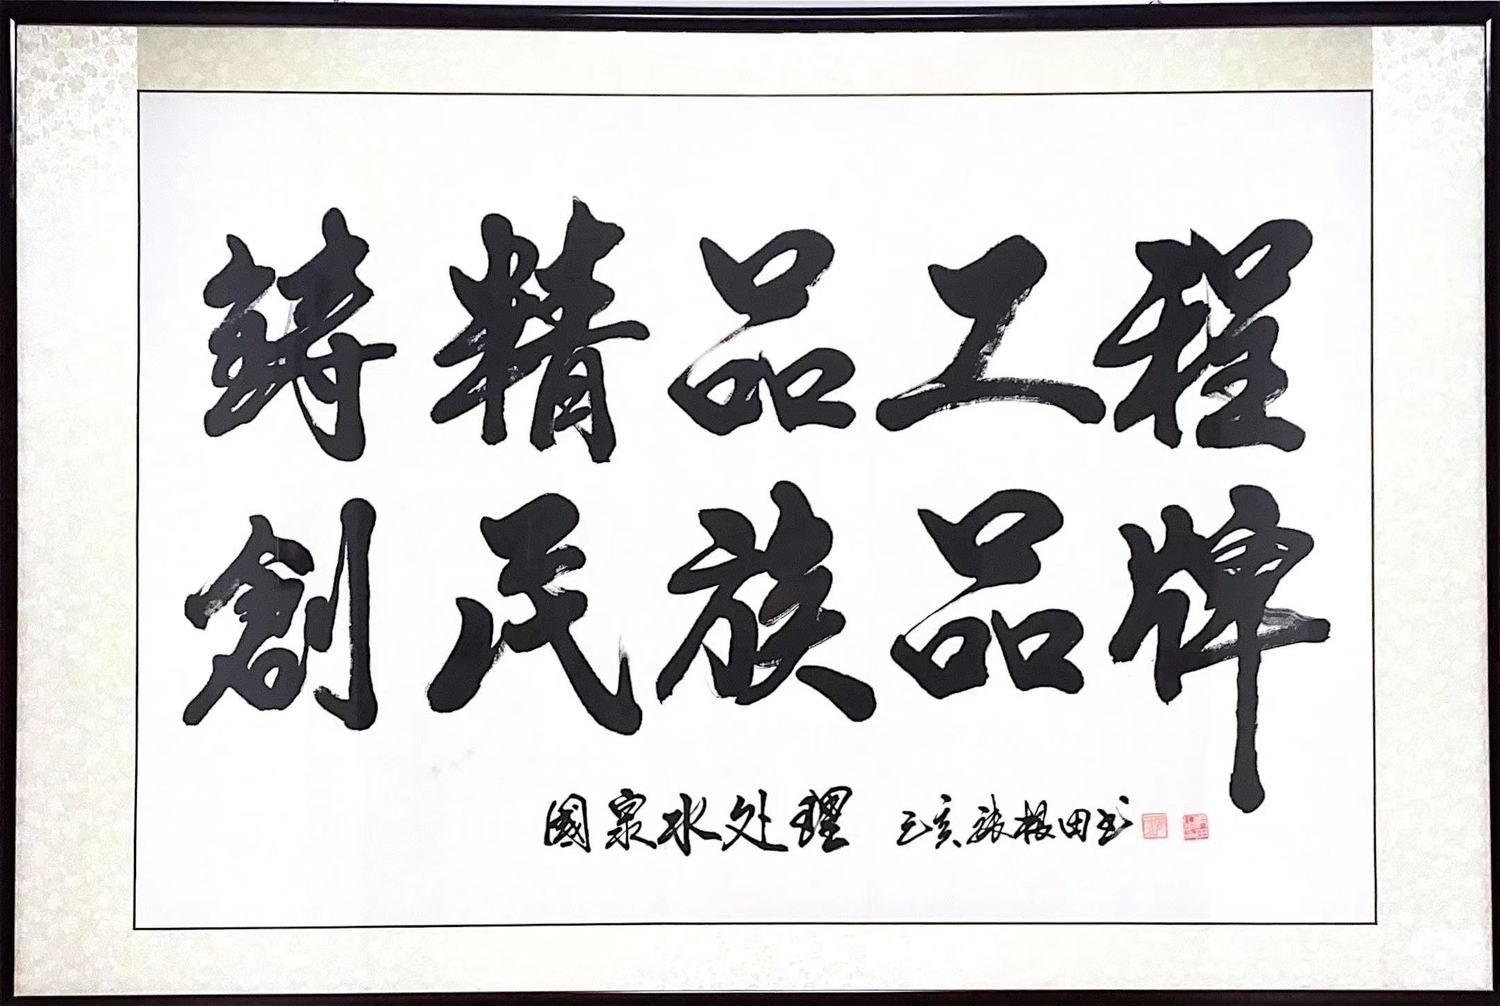 鑄精品工程
創民族品牌
國泉水处理 己亥张根田书